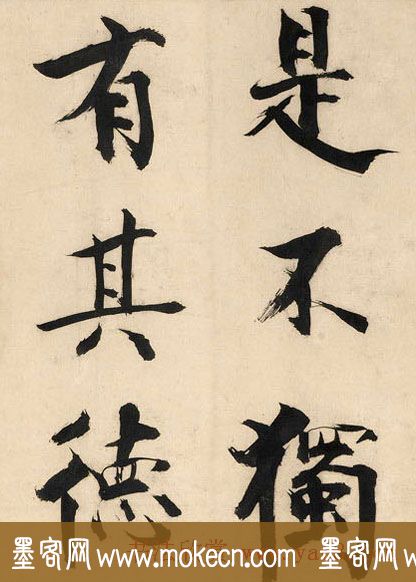 是不獨
有其德
墨客网 www.mokecn.com 墨客网